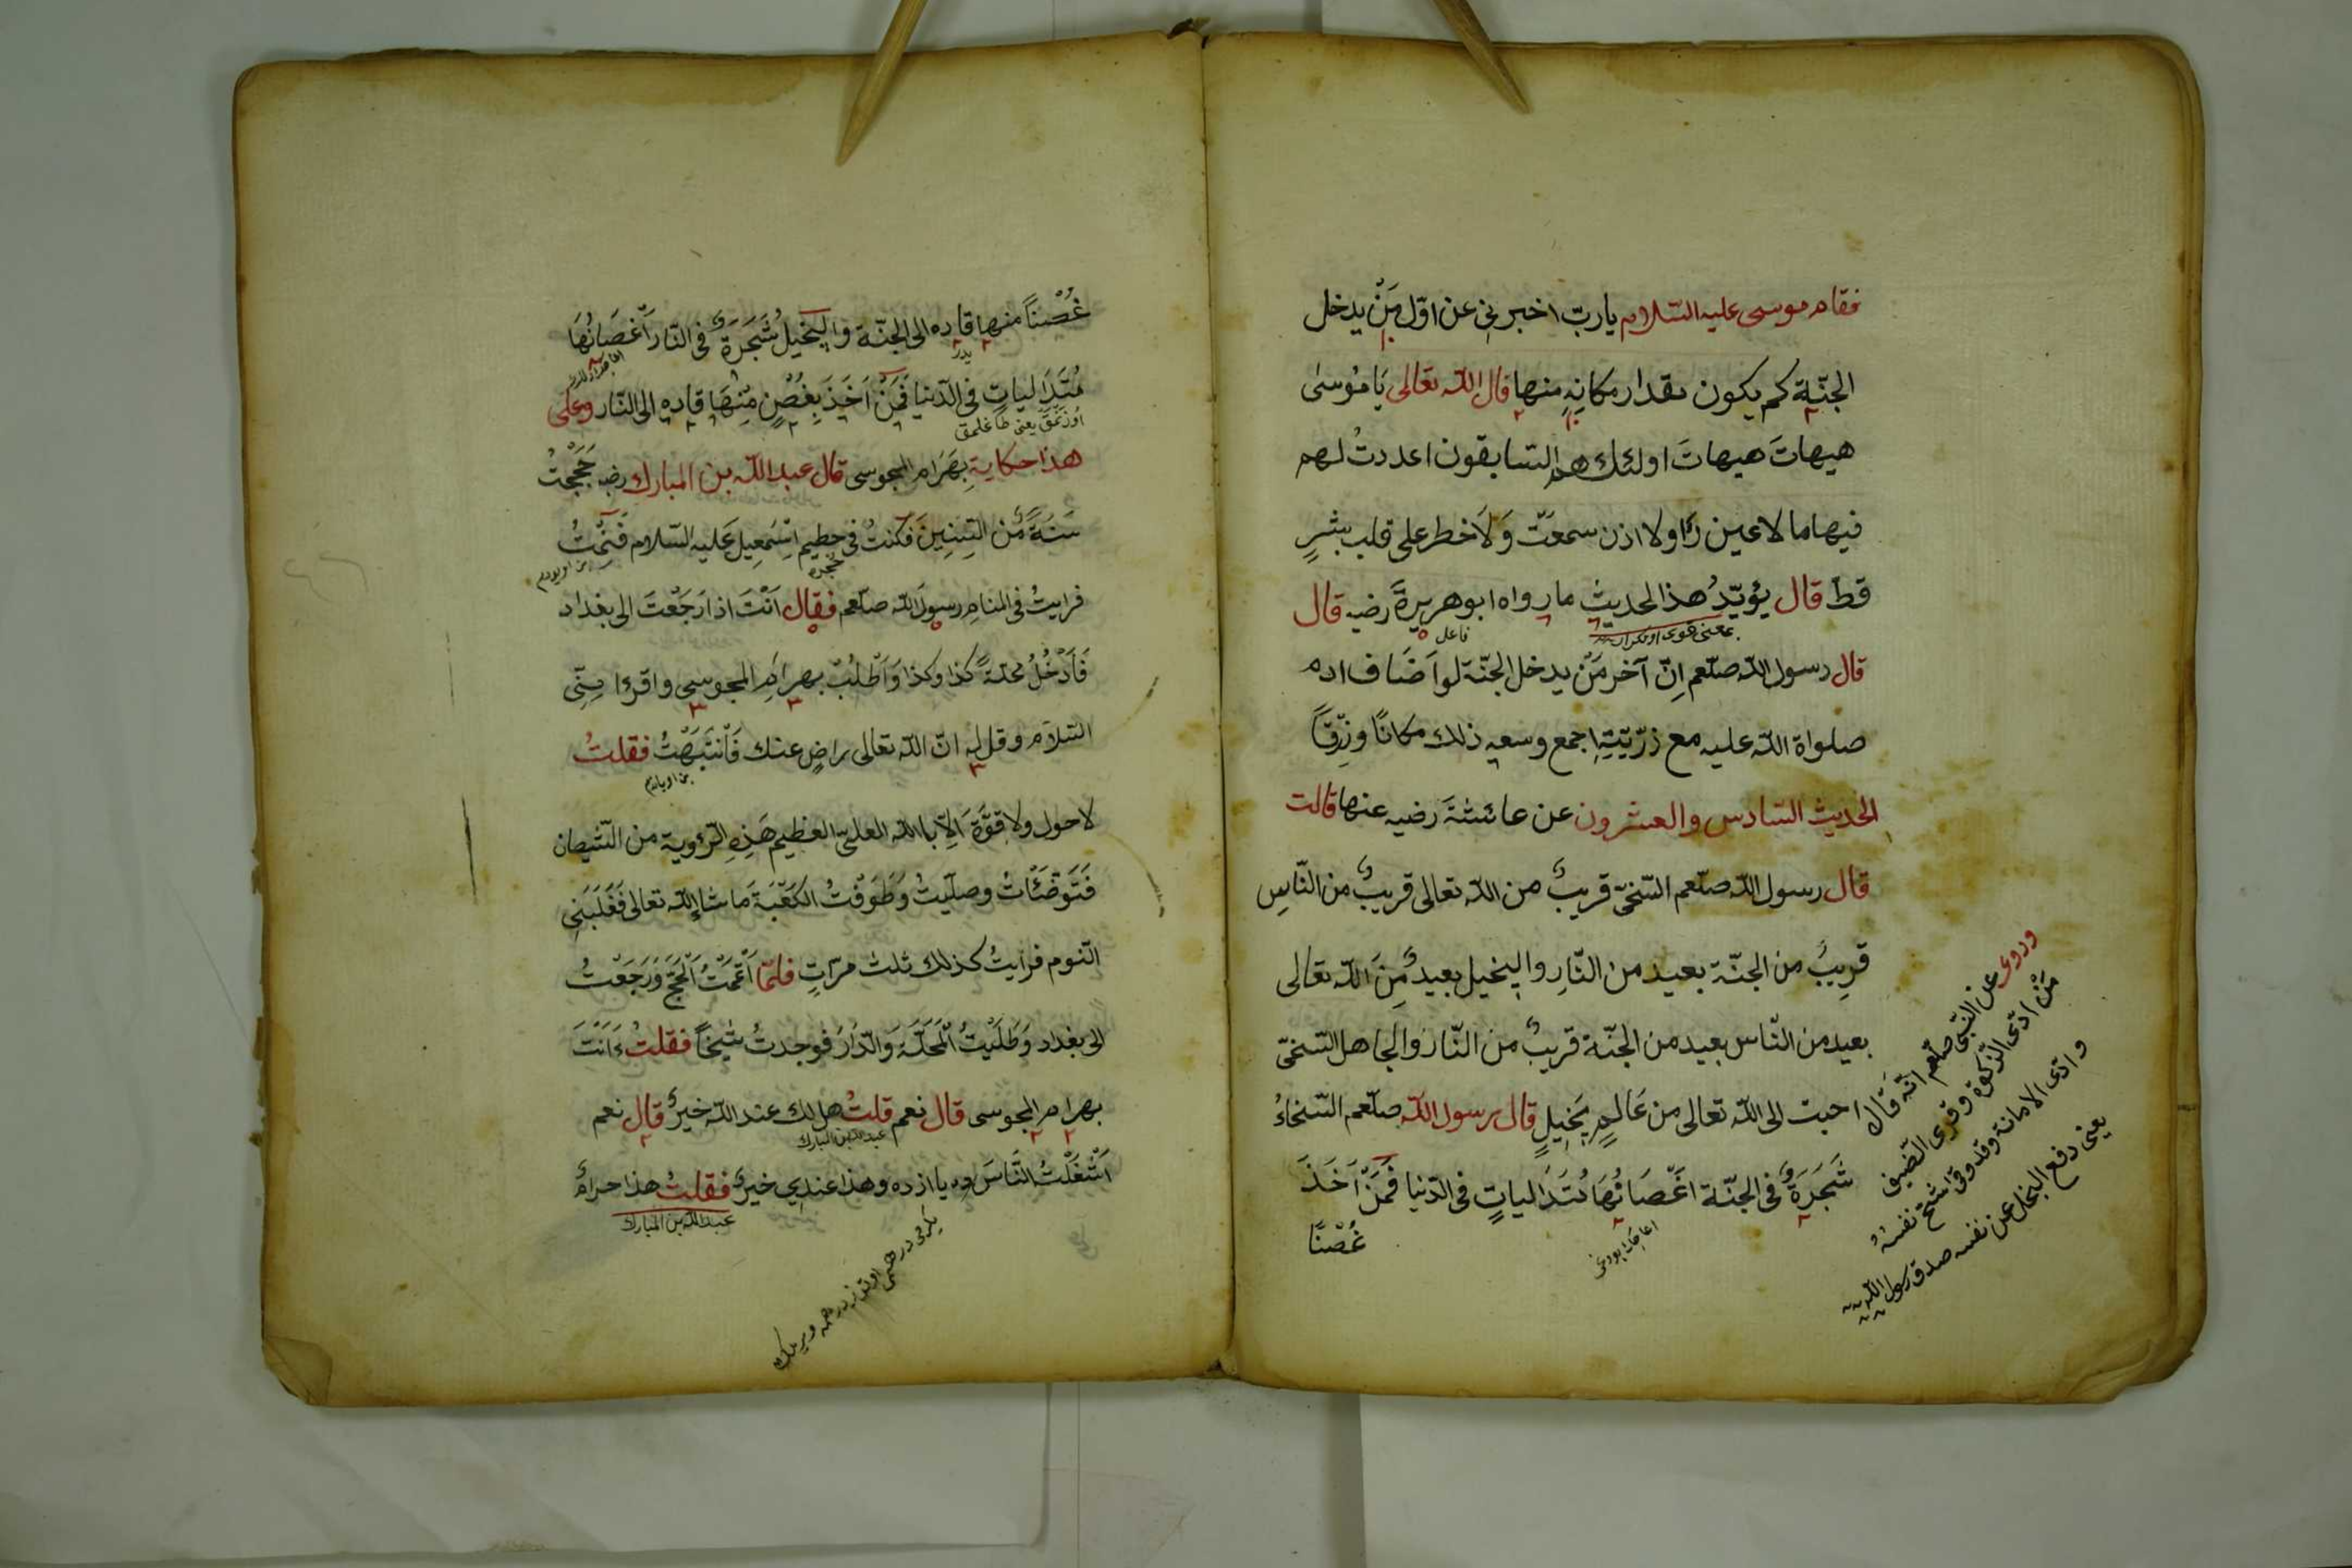 فقام موسى عليه السّلام يا ربّ اخبرني عن اوّل مَنْ يدخل
الجنّة كم يكون مقدار مكانِهِ منها قال اللّه تعالى يَا مُوسٰى
هيهاتَ هيهاتَ اولئك هم السّابقون اعددتُ لهم
فيها ما لا عين رَأ ولا اذن سمعَتْ وَلَا خطر على قلب بشرٍ
قطّ قال يؤيّدُ هذا الحديث ما رواه ابو هريرة رضيه قال
بمعنى قوى
فاعل
قال رسول اللّه صلّعم اِنّ آخر مَنْ يدخل الجنّة لو اَضَاف ادم
صلواة اللّه عليه مع ذرّيّتِهِ اجمع وسعه ذلك مكانًا ورِزقًا
الحديث السّادس والعشرون عن عائشَةَ رضيه عنها قالت
قال رسول اللّه صلّعم السّخىّ قريبٌ من اللّه تعالى قريبٌ من النّاسِ
قريبٌ من الجنّة بعيد من النّارِ والبخيل بعيدٌ مِنَ اللّه تعالى
بعيد من النّاس بعيد من الجنّة قريبٌ من النّار والجاهل السّخىّ
احبّ الى اللّه تعالى من عَالِمٍ بَخِيلٍ قال رسول اللّه صلّعم السّخاءُ
شَجَرَةٌ فى الجنّة اغْصَانُهَا مُتَدَالياتٍ فى الدّنيا فَمَنْ اَخَذَ
غُصْنًا
وروى عن النّبىّ صلّعم انّه قال
مَنْ ادّى الزّكوة وقرى الضّيف
وادّى الامانة فقد وقى شحّ نفسه
يعنى دفع البخل عن نفسه صدق رسول اللّه
غُصْنًا منها قاده الى الجنّة والبخيلُ شَجَرَةٌ فى النّار اَغْصَانُهَا
مُتَدَالياتٍ فى الدّنيا فَمَنْ اَخَذَ بِغُصْنٍ مِنْهَا قاده الى النّار وعلى
هذا حكاية بِهَرَام المجوسى قال عبد اللّه بن المبارك رضه حَجَجْتُ
سَنَةً مْن السِّنِينَ فكنتُ فى حطيم اِسْمعِيل عَليه السّلام فَنِمْتُ
فرايتُ فى المنام رسولَ اللّه صلّعم فقال اَنْتَ اذا رَجَعْتَ الى بغداد
فَاَدْخُلُ محلّةً كذا وكذا وَاَطْلُبْ بهرام المجوسى واقرءا مِنِّى
السّلام وقل له انّ اللّه تعالى راضٍ عنك فَاْنتَبَهْتُ فقلتُ
لاحول ولا قوَّةَ اَلِاّ باللّه العلىّ العظيم هَذِهِ الرّوية من الشّيطان
فَتَوَضَّئَاتُ وصلّيتُ وَطَوَفْتُ الكَعْبَةَ مَا شاء اللّه تعالى فَغَلَبَنِى
النّوم فرأيتُ كذلك ثلث مرّاتٍ فلمّا اَتْمَمْتُ اَلْحَجّ وَرَجَعْتُ
الى بغداد وَطَلَبْتُ اَلْمَحَلّةَ وَالدّارَ فوجدتُ شَيْخًا فقلتُ ءَاَنْتَ
بهرام المجوسى قال نعم قلتُ هل لك عند اللّه خيرٌ قال نعم
عبد اللّه بن المبارك
اَشْغَلْتُ النَّاسَ ده يازده وهذا عندى خيرٌ فقلتُ هذا حرامٌ
عبد اللّه بن المبارك